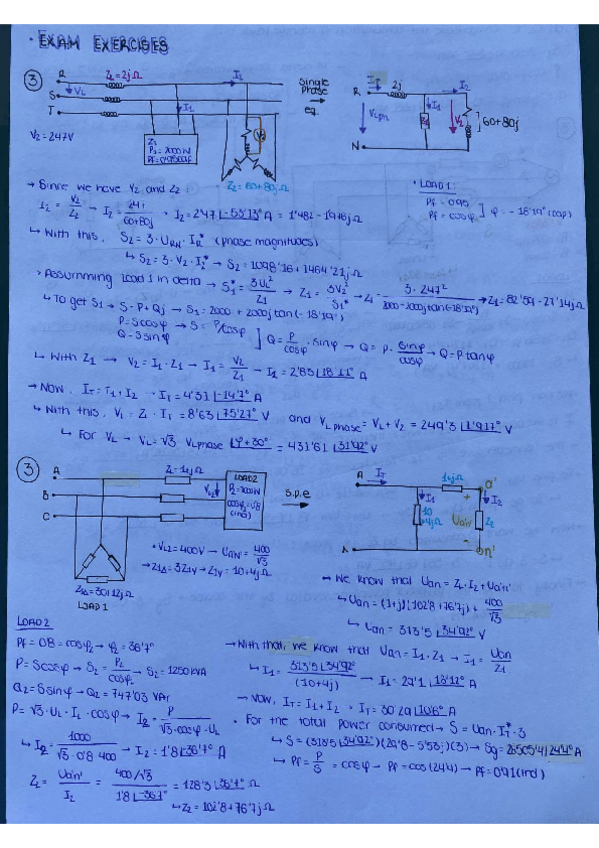 · EXAM EXERCISES
3
R
S
T
Z_L=2jΩ
I_2
V_L
I_1
V_2 = 247V
Z_1
V_2
Z_2 = 60+80jΩ
Single
Phase
eq.
R
I_T
2j
I_2
I_1
Z_1
V_2
60+80j
N
→ Since we have V_2 and Z_2 :
I_2 = V_2/Z_2 → I_2 = /60+80j · I_2 = 2'47 ∟-53'13° A = 1'482 - 1'976j Ω
· LOAD 1:
Pf = 0'95
Pf = cosφ ] φ = - 18'19° (cap)
↳ With this, S_2 = 3 · U_RN · I_R* (phase magnitudes)
↳ S_2 = 3 · V_2 · I_2* → S_2 = 1098'16 + 1464'21j Ω
> Assumming load 1 in delta → S_1* = 3U_L²/Z_1 → Z_1 = 3V_2²/S_1* → Z_1 = 3 · 247²/2000-2000j tan(-18'19°) → Z_1 = 82'39 - 27'14j Ω
↳ To get S_1 → S = P+Qj → S_1 = 2000 + 2000j tan(-18'19°)
P = S cosφ → S = P/cosφ
Q = S sinφ ] Q = P/cosφ · sinφ → Q = P · sinφ/cosφ → Q = P tanφ
↳ With Z_1 → V_2 = I_1 · Z_1 → I_1 = V_2/Z_1 → I_1 = 2'83 A
→ Now, I_T = I_1 + I_2 → I_T = 4'31 ∟-14'7° A
↳ With this, V_L = Z · I_T = 8'63 ∟75'27° V and V_L phase = V_L + V_2 = 249'3 ∟1'917° V
↳ For V_L → V_L = √3 · V_L phase ∟φ+30° = 431'61 ∟31'92° V
3
A
B
C
LOAD 2
cosφ_2=0'8
(ind)
V_L2
Z_1Δ = 30+12jΩ
LOAD 1
· V_L2 = 400V → U_a'n' = 400/√3
→ Z_1Δ = 3Z_1Y → Z_1Y = 10+4jΩ
s.p.e
A
I_T
1+jΩ
a'
I_1
I_2
10
+4jΩ
U_a'n'
Z_2
n'
→ We know that U_an = Z_L · I_2 + U_a'n'
↳ U_an = (1+j)(102'8+76'7j) + 400/√3
↳ U_an = 313'5 ∟34'92° V
LOAD 2
Pf = 0'8 = cosφ_2 → φ_2 = 36'7°
P = S cosφ → S_2 = P_2/cosφ_2 → S_2 = 1250 kVA
Q_2 = S sinφ → Q_2 = 747'03 VAr
P = √3 · U_L · I_L · cosφ → I_2 = P/√3 · cosφ · U_L
↳ I_2 = 1000/√3 · 0'8 · 400 → I_2 = 1'8 ∟36'7° A
Z_2 = U_a'n'/I_2 = 400/√3/1'8 ∟-36'7 = 128'3 ∟36'7° Ω
↳ Z_2 = 102'8 + 76'7j Ω
→ With that, we know that U_an = I_1 · Z_1 → I_1 = U_an/Z_1
↳ I_1 = 313'5 ∟34'92°/(10+4j) → I_1 = 29'1 ∟13'12° A
→ Now, I_T = I_1 + I_2 → I_T = 30'29 ∟10'6° A
· For the total power consumed → S = U_an · I_T* · 3
↳ S = (313'5 ∟34'92°)(29'8 - 5'53j)(3) → S_g = ∟24'4° A
↳ Pf = P/S = cosφ → Pf = cos(24'4) → Pf = 0'91 (ind)